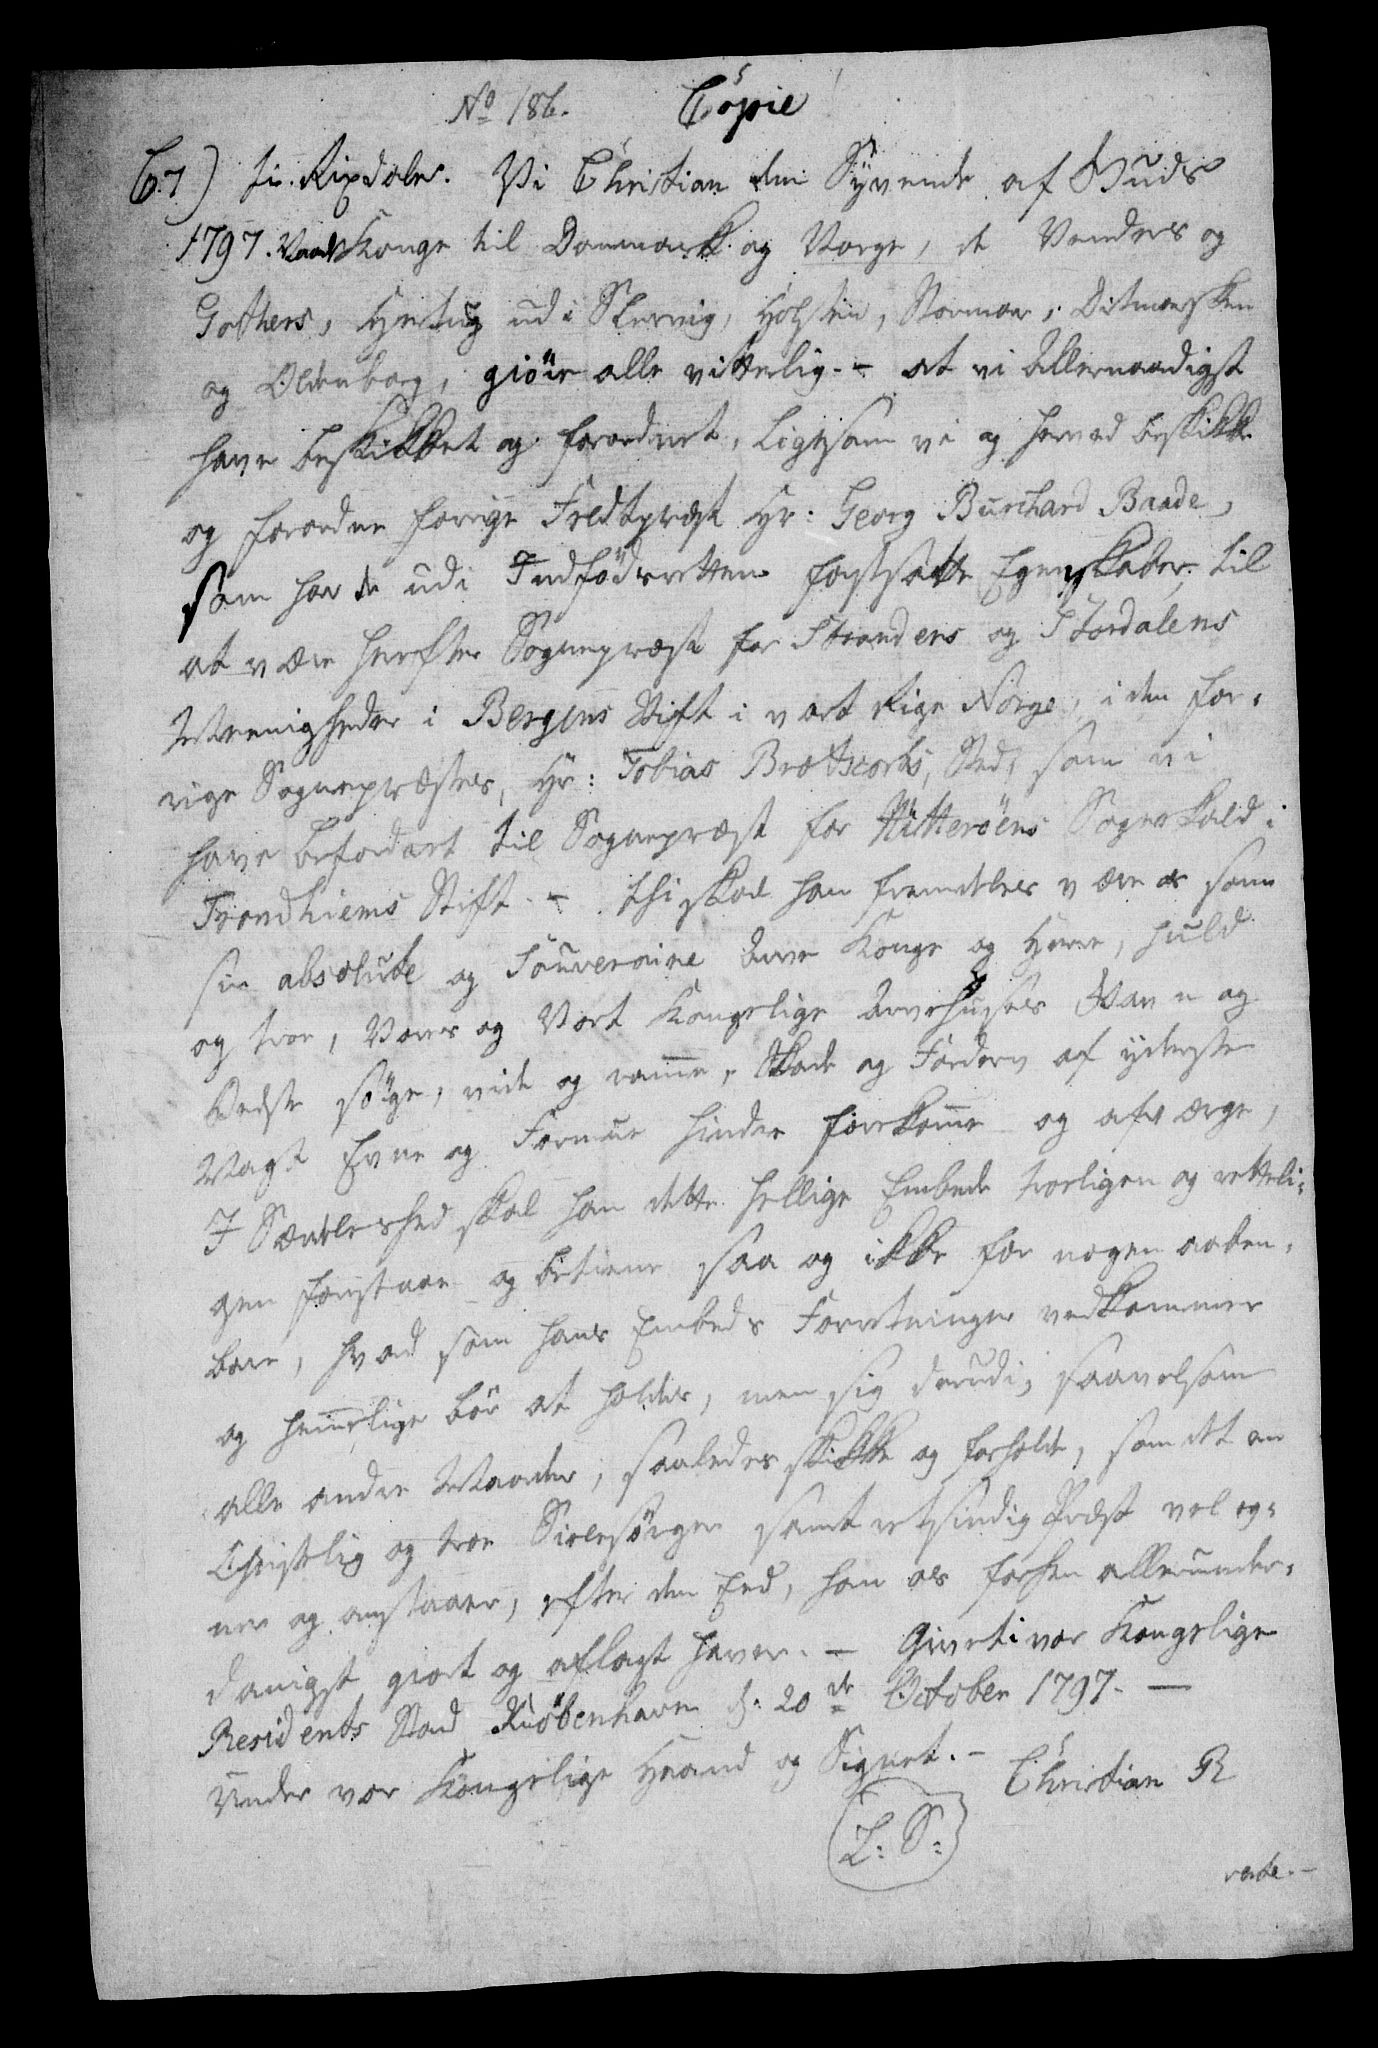 No 186. Copie
C.7) ti. Rixdaler. Vi Christian den Syvende af Guds
1797. Naade Konge til Danmark og Norge, de Venders og
Gothers, Hertug udi Slesvig, Holsten, Stormar, Ditmarsken
og Oldenborg, giöre alle vitterlig - at vi Allernaadigst
have beskikket og forordnet, ligesom vi og herved beskikke
og forordne forrige Feldtpræst Hr: Georg Burchard Baade,
som har de udi Indfödsretten fastsatte Egenskaber, til
at være herefter Sognepræst for Stranders og Stordalens
Menigheder i Bergens Stift i vort Rige Norge, i den for-
rige Sognepræstes, Hr: Tobias Brotkorbs, Sted, som vi
have befordret til Sognepræst for Hitteröens Sognekald i
Trondhiems Stift. - thi skal han fremdeles være os som
sin absolute og Souveraine Arve Konge og Herre, huld
og troe, Vores og Vort Kongelige Arvehuses Gavn og
Bedste söge, vide og ramme, Skade og Fordærv af yderste
Magt Evne og Formue hindre forekomme og afværge,
I Særdeleshed skal han dette hellige Embede troeligen og retteli-
gen forestaae og betiene saa og ikke for nogen aaben-
bare, hvad som hans Embeds Forretninger vedkommer
og hemmelige bör at holdes, men sig derudi, saavelsom
alle andre Maader, saaledes skikke og forholde, som det en
Christelig og troe Sielesörger samt retsindig Præst vel eg-
ner og anstaaer, efter den Eed, han os forhen allerunder-
danigst giort og aflagt haver. - Givet i vor Kongelige
Residents Stad Kiöbenhavn d: 20de October 1797. -
Under vor Kongelige Haand og Signet. -
Christian R
L: S:
verte. -